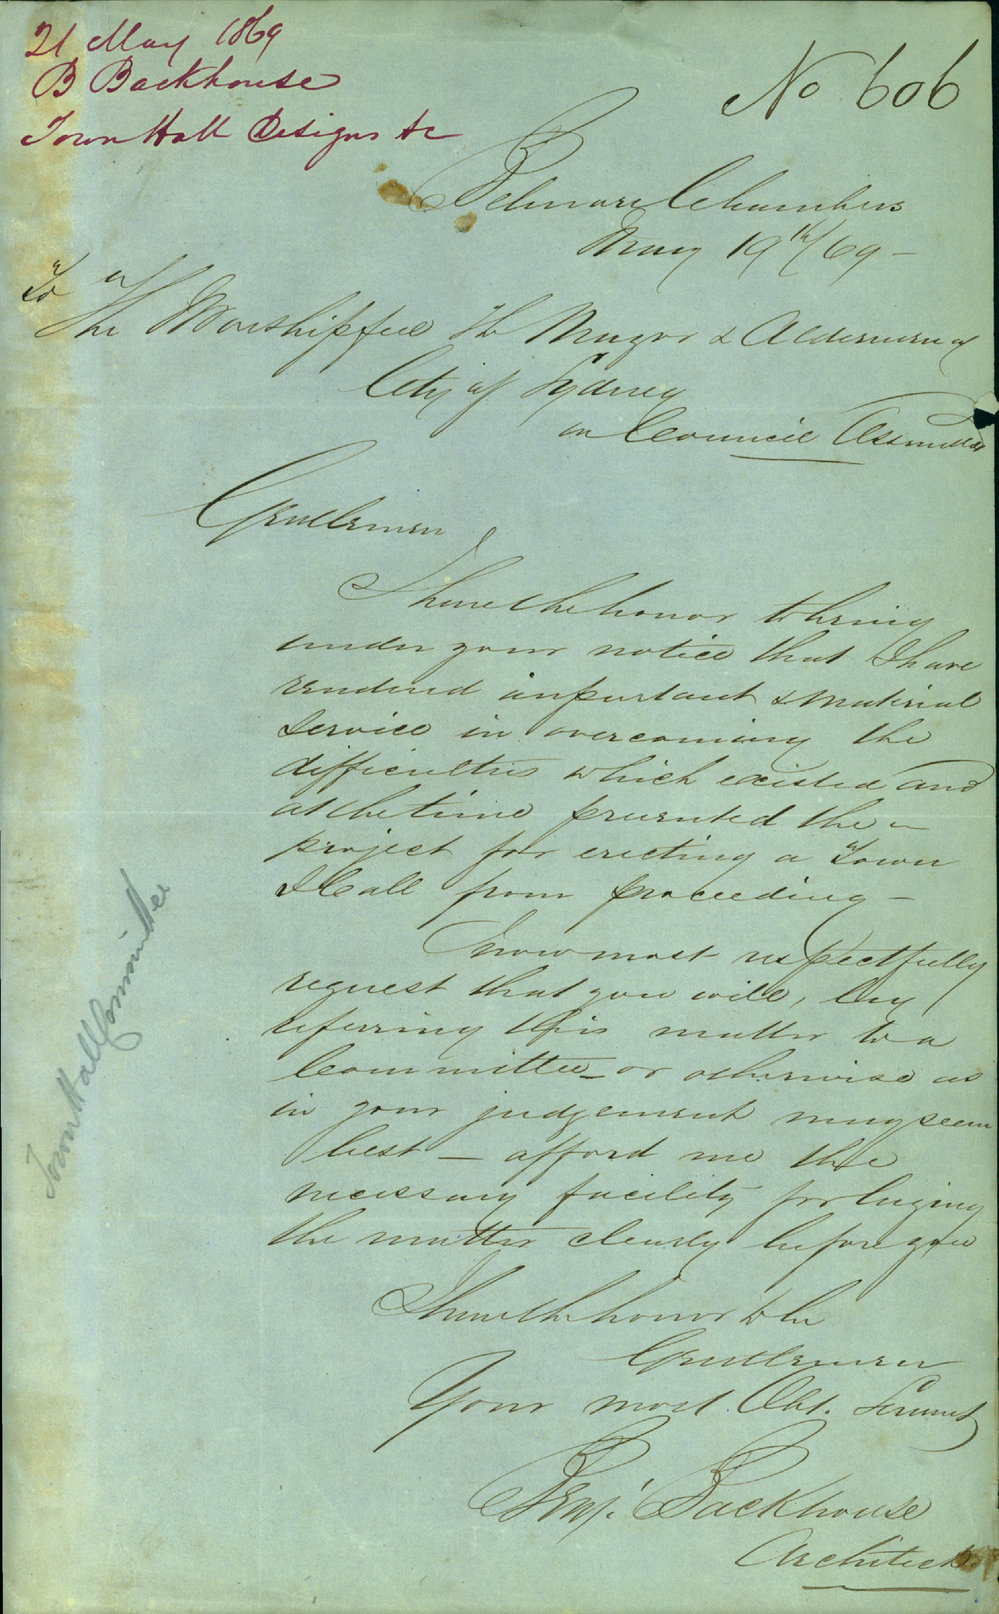 21 May 1869
B Backhouse
Town Hall Designs &c
No 606
Belmore Chambers
May 19th/69 -
To
The Worshipful the Mayor & Aldermen of
City of Sydney
in Council Assembled
Gentlemen
I have the honor to bring
under your notice that I have
rendered important & material
service in overcoming the
difficulties which existed and
at the time prevented the
project for erecting a Town
Hall from proceeding -
I now most respectfully
request that you will, by
referring this matter to a
Committee - or otherwise as
in your judgement may seem
best - afford me the
necessary facility for laying
the matter clearly before you
I have the honor to be
Gentlemen
Your most Obt. Servant
Benj. Backhouse
Architect
Town Hall Committee